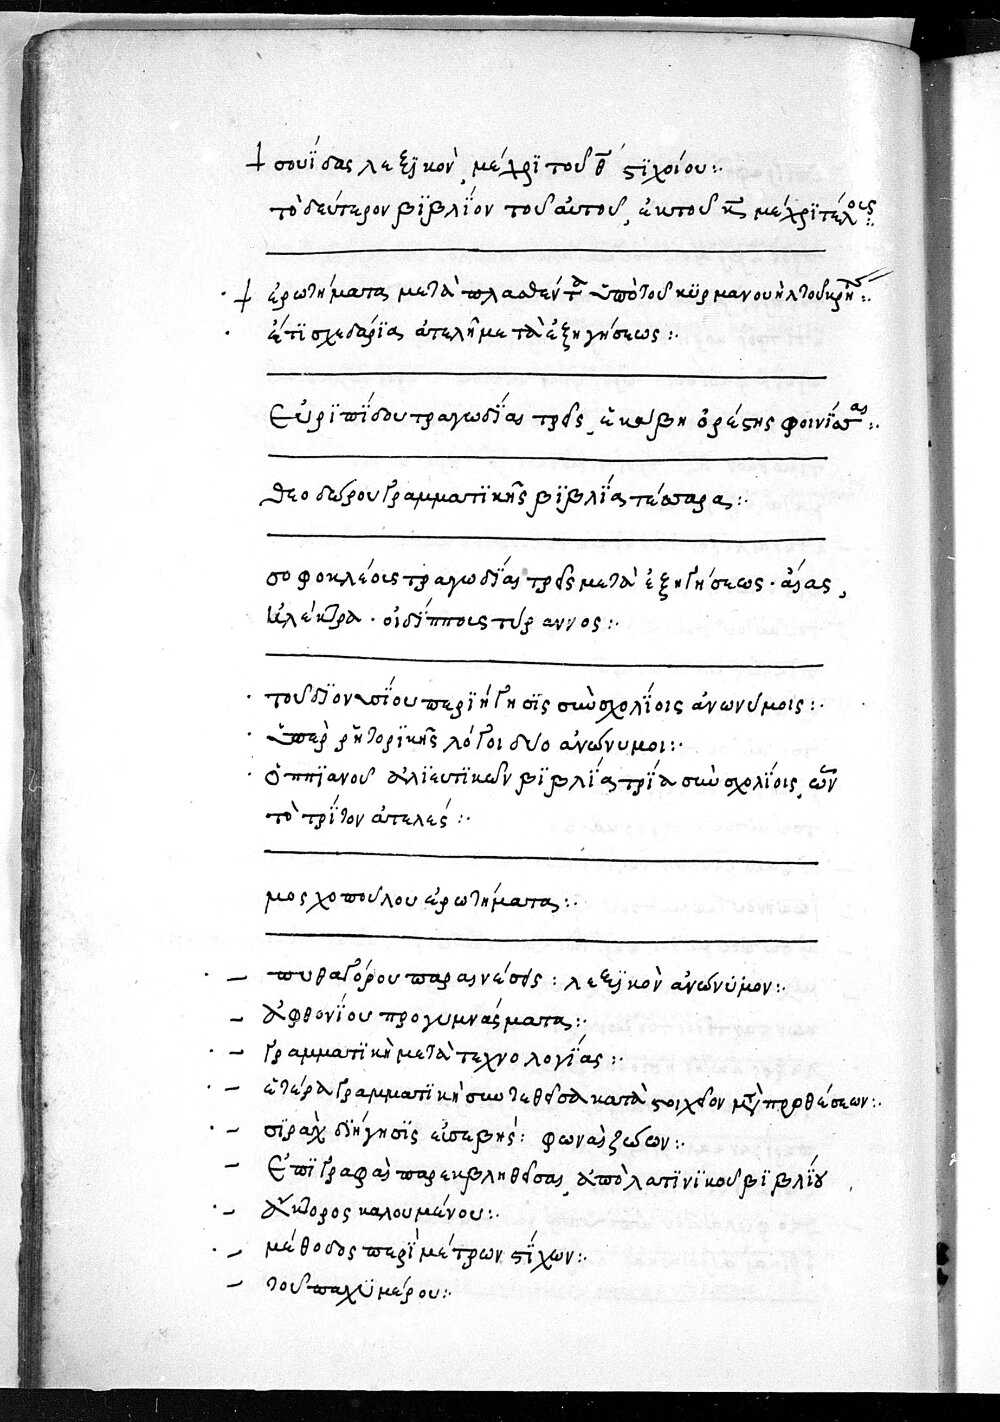 σουΐδας λεξϊκὸν, μέχρϊ τοῦ θ̄ στϊχοίου:·
τὸ δεύτερον βϊβλΐον τοῦ αὐτοῦ, ἐκ τοῦ κ̄ μέχρϊ τέλους:·
ἐρωτήματα μετὰ πλασθέντα ὑπὸ τοῦ κϋρμανουὴλ τοῦ κρη:·
ἔτϊ σχεδάρϊα ἀτελῆ μετὰ ἐξηγήσεως:·
Εὐρϊπΐδου τραγωδΐας τρεῖς, ἑκάβη ὀρέστης φοινΐσας:·
θεοδώρου Γραμματϊκῆς βϊβλΐα τέσσαρα:·
σοφοκλέους τραγωδΐας τρεῖς μετὰ ἐξηΓήσεως· ἀίας,
ἠλέκτρα· οἰδίππους τύραννος:·
τοῦ δϊονυσΐου περϊήΓησϊς σὺν σχολΐοις ἀνωνύμοις:·
ὑπὲρ ῥητορϊκῆς λόΓοι δύο ἀνώνυμοι:·
Ὀππϊανοῦ ἁλϊευτϊκῶν βϊβλΐα τρΐα σὺν σχολΐοις, ὧν
τὸ τρΐτον ἀτελές:·
μοσχοπούλου ἐρωτήματα:·
πυθαΓόρου παραινέσεις: λεξϊκὸν ἀνώνϋμον:·
ἀφθονΐου προγυμνάσματα:·
Γραμματϊκὴ μετὰ τεχνολογΐας:·
ἑτέρα Γραμματϊκὴ συντεθεῖσα κατὰ στοιχεῖον μτ̀ προθέσεων:·
σϊρὰχ διήγησϊς εὐσεβής: φωναὶ ζώων:·
ἘπϊΓραφαὶ παρεκβληθεῖσαι, ἀπὸ λατϊνϊκοῦ βϊβλΐου
ἄκτορος καλουμένου:·
μέθοδος περϊ μέτρων στΐχων:·
τοῦ παχϋμέρου:·